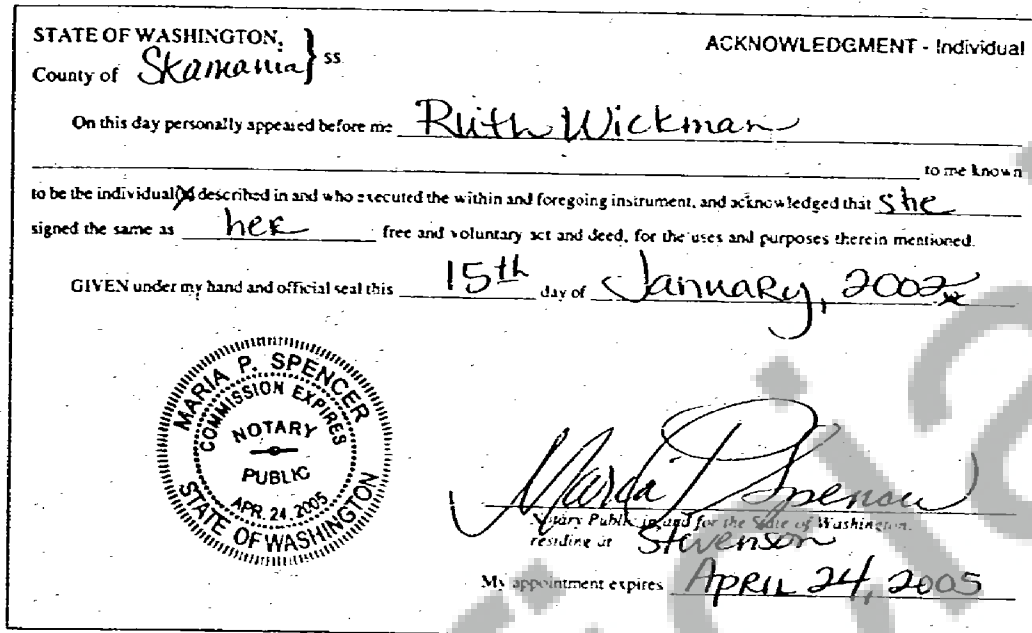 STATE OF WASHINGTON,
County of Skamania } ss
ACKNOWLEDGMENT - Individual
On this day personally appeared before me Ruth Wickman
to me known
to be the individual(s) described in and who executed the within and foregoing instrument, and acknowledged that she
signed the same as her free and voluntary act and deed, for the uses and purposes therein mentioned.
GIVEN under my hand and official seal this 15th day of January, 2002
MARIA P. SPENCER
COMMISSION EXPIRES
NOTARY
PUBLIC
APR. 24, 2005
STATE OF WASHINGTON
Maria P Spencer
Notary Public in and for the State of Washington,
residing at Stevenson
My appointment expires APRIL 24, 2005